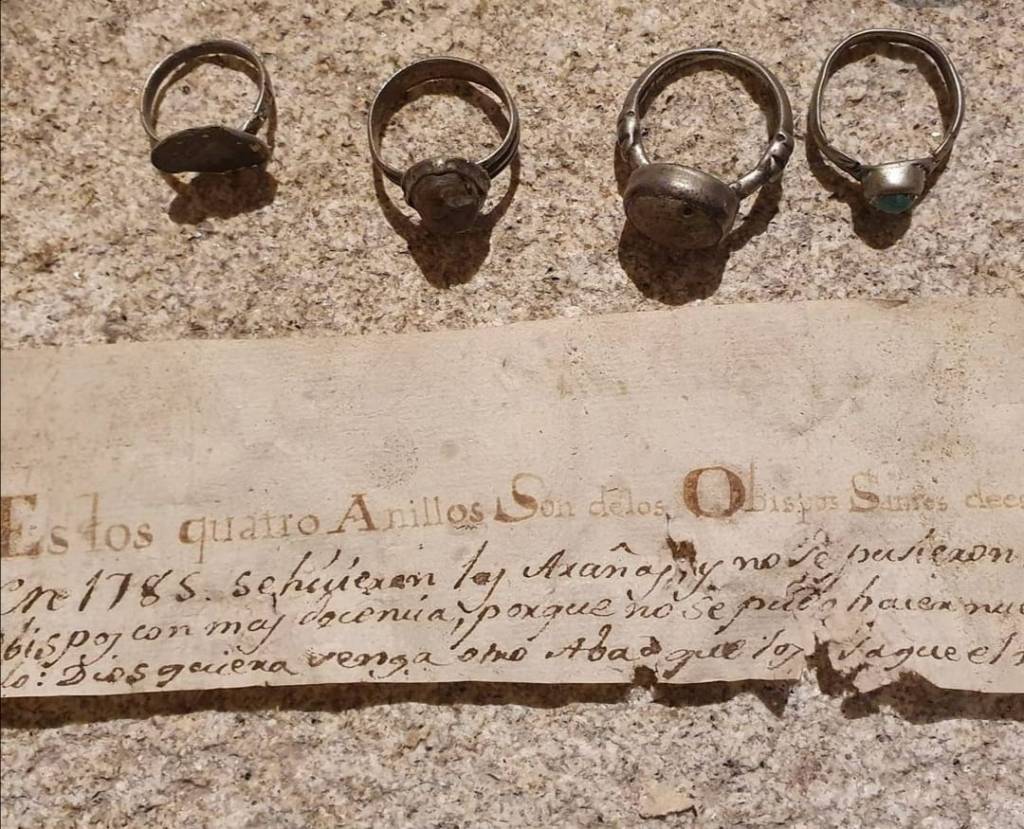 Estos quatro Anillos Son delos Obispos Santos
1785. se hizieren las Arañas, y no se pusieron
con mas docencia, porque no se pudo hacer
Dios quiera venga otro Abad que los saque